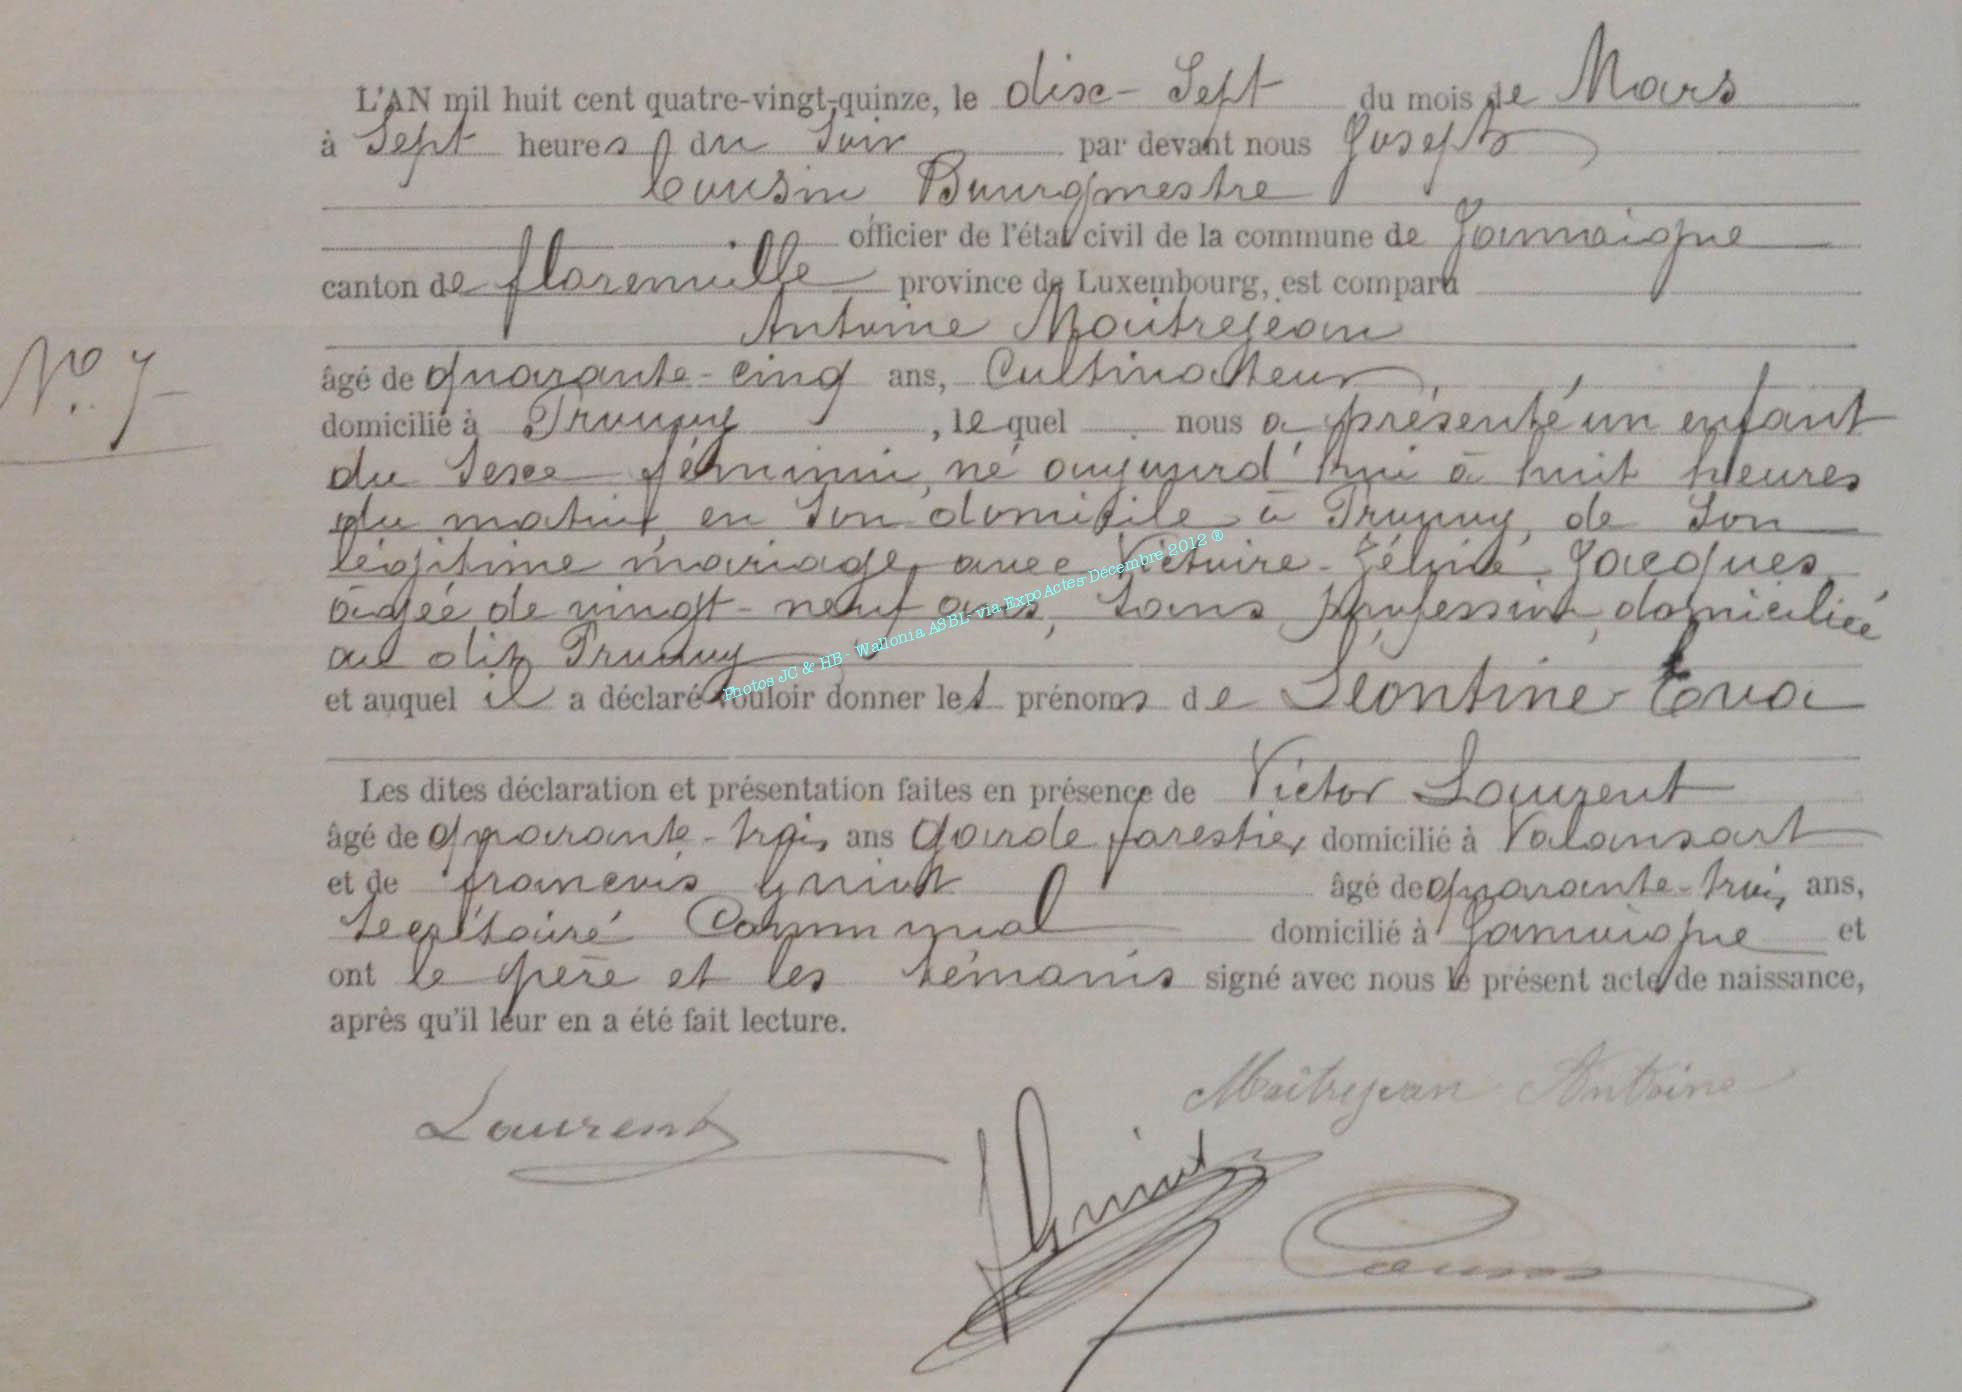 L'AN mil huit cent quatre-vingt-quinze, le dix-Sept du mois de Mars
à Sept heures du Soir par devant nous Joseph
Cousin Bourgmestre
officier de l'état civil de la commune de Jamoigne
canton de florenville province de Luxembourg, est comparu
Antoine Maitrejean
âgé de quarante-cinq ans, Cultivateur,
N° 7
domicilié à Prouvy, lequel nous a présenté un enfant
du Sexe féminin, né aujourd'hui à huit heures
du matin, en Son domicile à Prouvy, de Son
légitime mariage avec Victoire Jacques,
âgée de vingt-neuf ans, Sans profession, domiciliée
au dit Prouvy
et auquel il a déclaré vouloir donner les prénoms de Léontine Eva
Les dites déclaration et présentation faites en présence de Victor Laurent
âgé de quarante-trois ans Garde forestier domicilié à Valansart
et de françois âgé de quarante-trois ans,
Secrétaire Communal domicilié à Jamoigne et
ont le père et les témoins signé avec nous le présent acte de naissance,
après qu'il leur en a été fait lecture.
Maitrejean Antoine
Laurent
Photos JC & HB - Wallonia ASBL- via ExpoActes-Décembre 2012 ®